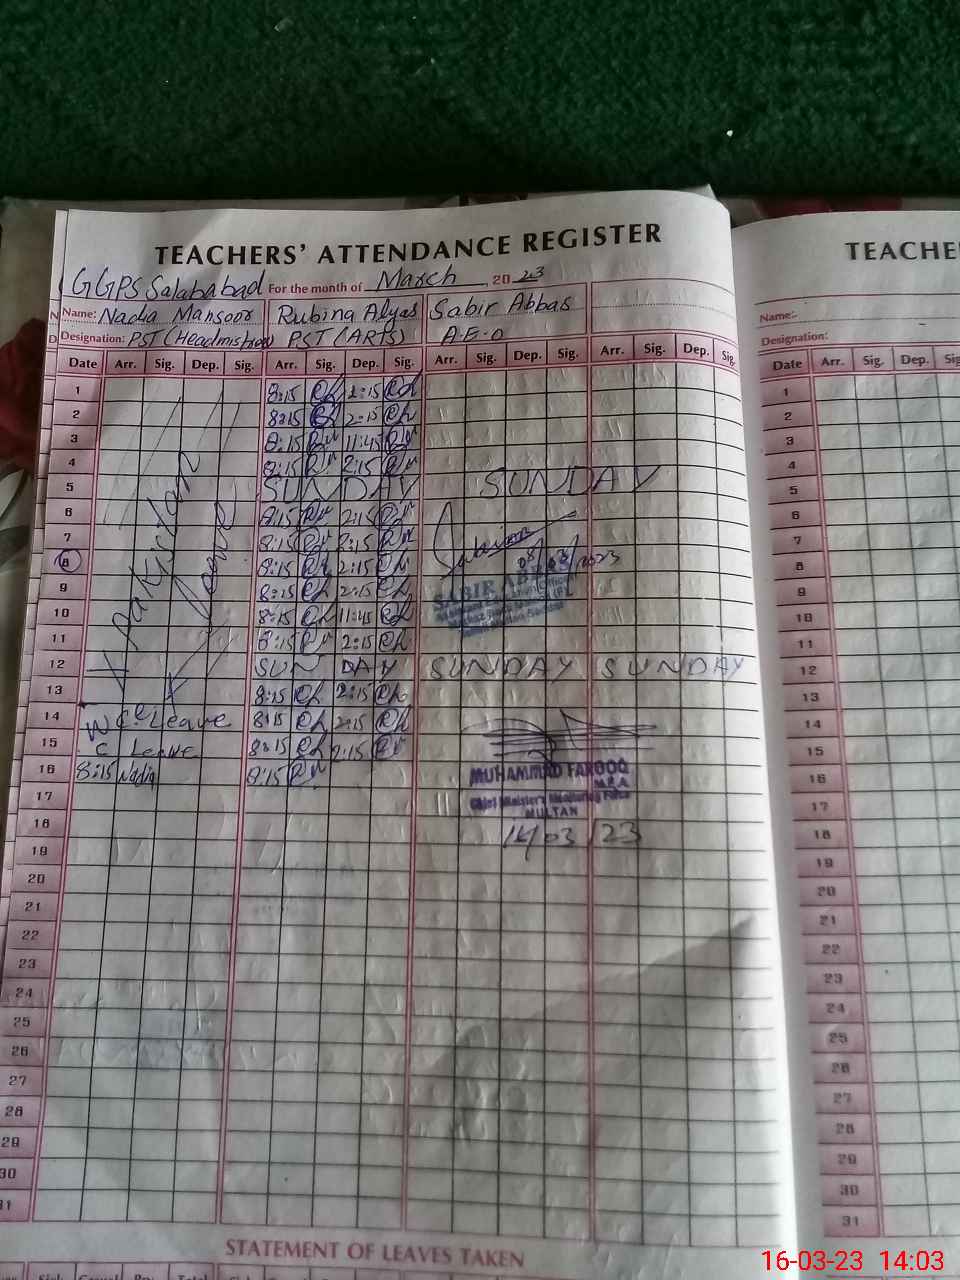 TEACHERS' ATTENDANCE REGISTER
GGPS Salababad For the month of March, 2023
Name: Nadia Mansoor Rubina Alyas Sabir Abbas
Designation: PST (Headmistress) PST (ARTS) A.E.O
Date Arr. Sig. Dep. Sig. Arr. Sig. Dep. Sig. Arr. Sig. Dep. Sig. Arr. Sig. Dep. Sig.
1 8:15 2:15
2 8:15 2:15
3 8:15 11:45
4 8:15 2:15
5 SUNDAY SUNDAY
6 8:15 2:15
7 8:15 2:15
8 8:15 2:15 08/03/2023
9 8:15 2:15
SABIR ABBAS
10 8:15 11:45
11 8:15 2:15
12 SUN DAY SUNDAY SUNDAY
13 8:15 2:15
14 Leave 8:15 2:15
15 C Leave 8:15 2:15
16 8:15 Nadia 8:15
X Pakistan leave
MUHAMMAD FAROOQ
Chief Minister's Monitoring Force
MULTAN
14/03/23
17
18
19
20
21
22
23
24
25
26
27
28
29
30
31
STATEMENT OF LEAVES TAKEN
Sig. Casual Total
TEACHE
Name:-
Designation:
Date Arr. Sig. Dep. Sig.
1
2
3
4
5
6
7
8
9
10
11
12
13
14
15
16
17
18
19
20
21
22
23
24
25
26
27
28
29
30
31
16-03-23 14:03